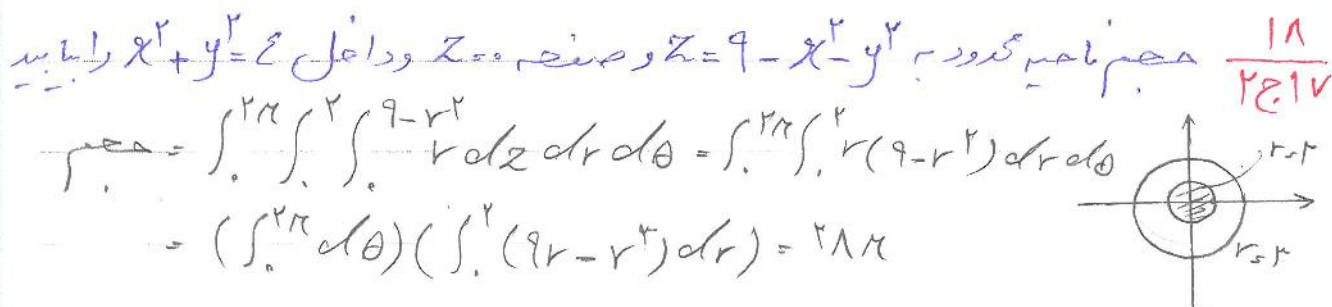 ۱۸/۱۷ج۲ حجم ناحیه محدود به z=۹-x^۲-y^۲ و صفحه z=۰ و داخل x^۲+y^۲=۴ را بیابید
حجم = ∫_۰^{۲π} ∫_۰^۲ ∫_۰^{۹-r^۲} r dz dr dθ = ∫_۰^{۲π} ∫_۰^۲ r(۹-r^۲) dr dθ
= (∫_۰^{۲π} dθ)(∫_۰^۲ (۹r-r^۳) dr) = ۲۸π
r=۲
r=۳